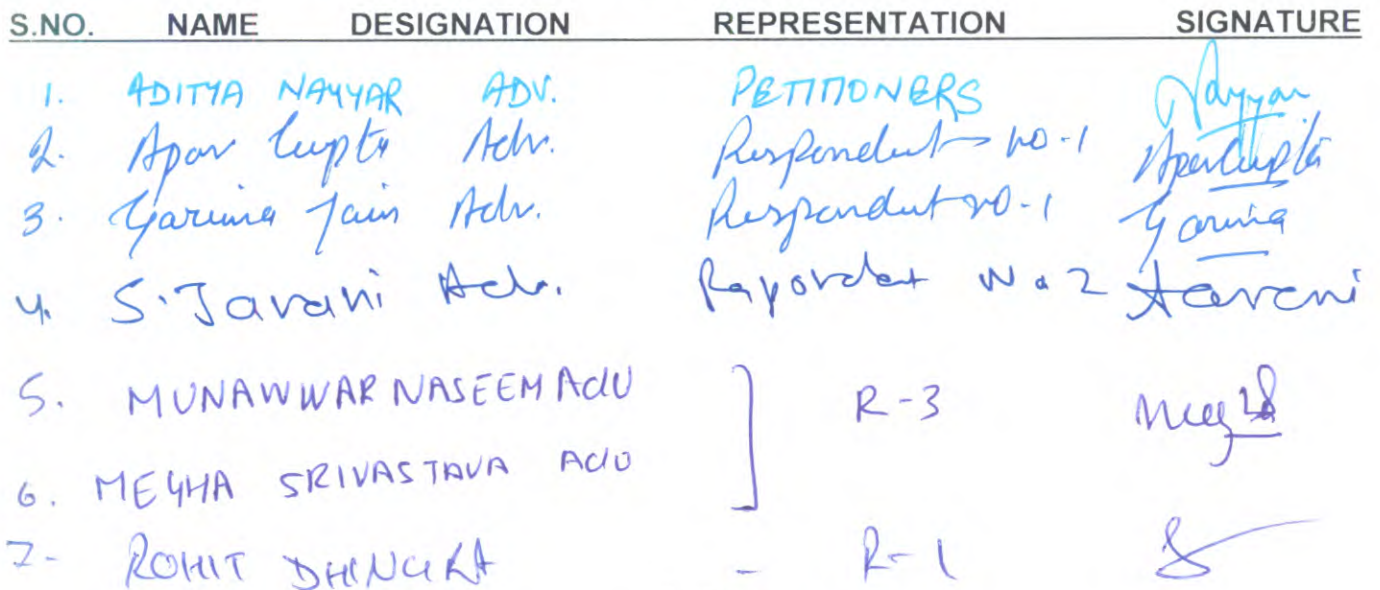 S.NO. NAME DESIGNATION REPRESENTATION SIGNATURE
1. ADITYA NAYYAR ADV. PETITIONERS Nayyar
2. Apar Gupta Adv. Respondent no-1 Apar Gupta
3. Garima Jain Adv. Respondent no-1 Garima
4. S. Javani Adv. No 2 Javani
5. MUNAWWAR NASEEM Adv R-3
6. MEGHA SRIVASTAVA Adv
7- ROHIT DHINGRA - R-1